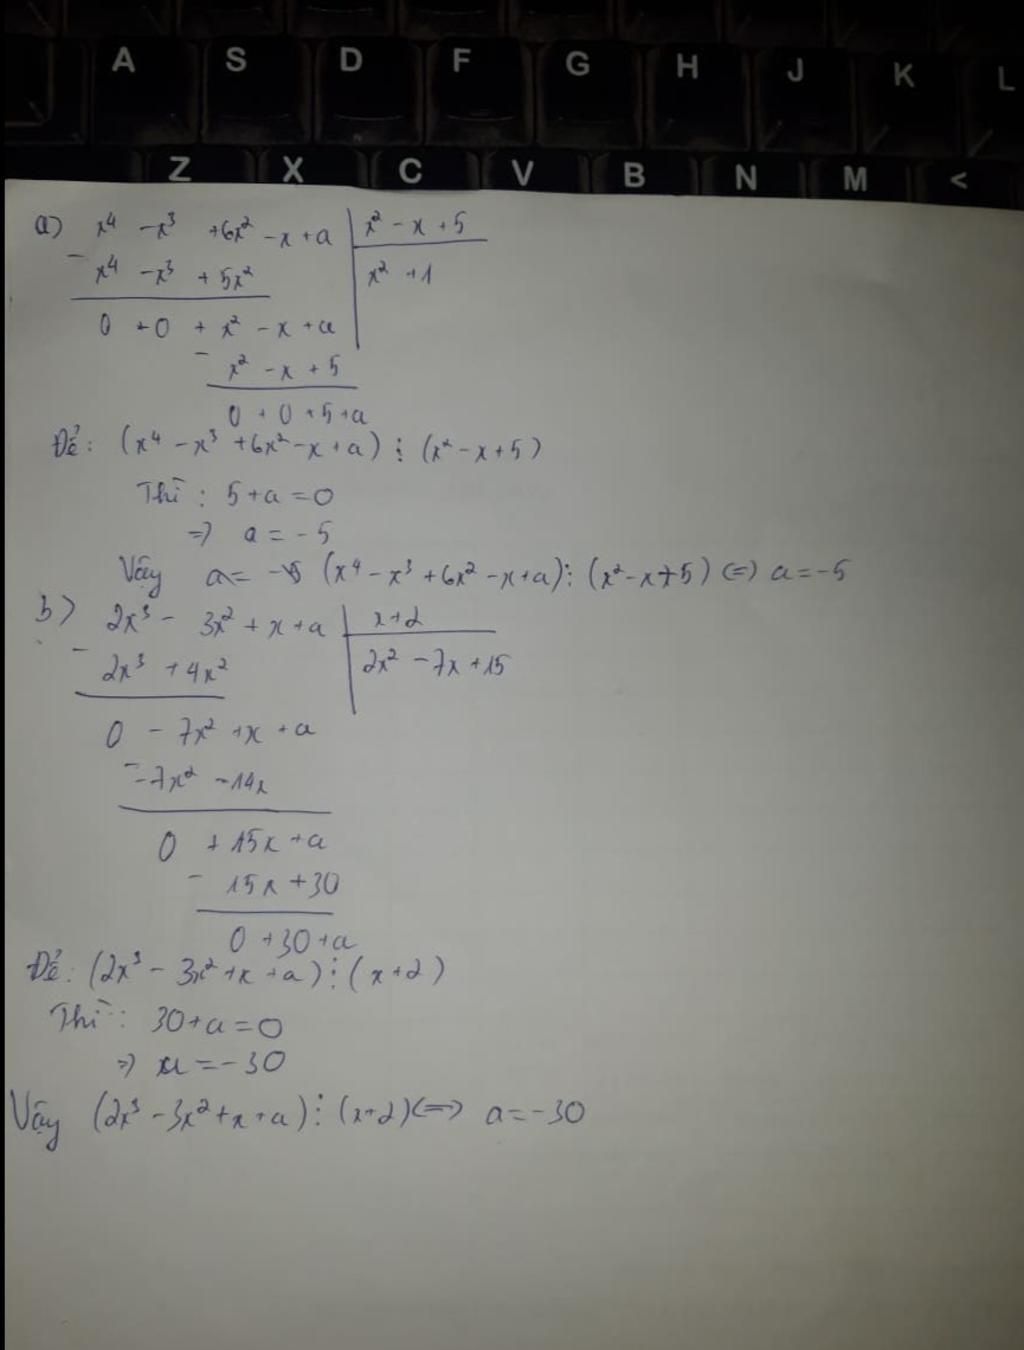 A S D F G H J K L
Z X C V B N M <
a) x⁴ - x³ + 6x² - x + a | x² - x + 5
- x⁴ - x³ + 5x² | x² + 1
0 + 0 + x² - x + a
- x² - x + 5
0 + 0 + 5 + a
Để: (x⁴ - x³ + 6x² - x + a) ⋮ (x² - x + 5)
Thì: 5 + a = 0
=> a = -5
Vậy a = -5 (x⁴ - x³ + 6x² - x + a) ⋮ (x² - x + 5) <=> a = -5
b) 2x³ - 3x² + x + a | x + 2
- 2x³ + 4x² | 2x² - 7x + 15
0 - 7x² + x + a
- -7x² - 14x
0 + 15x + a
- 15x + 30
0 + 30 + a
Để: (2x³ - 3x² + x + a) ⋮ (x + 2)
Thì: 30 + a = 0
=> a = -30
Vậy (2x³ - 3x² + x + a) ⋮ (x + 2) <=> a = -30